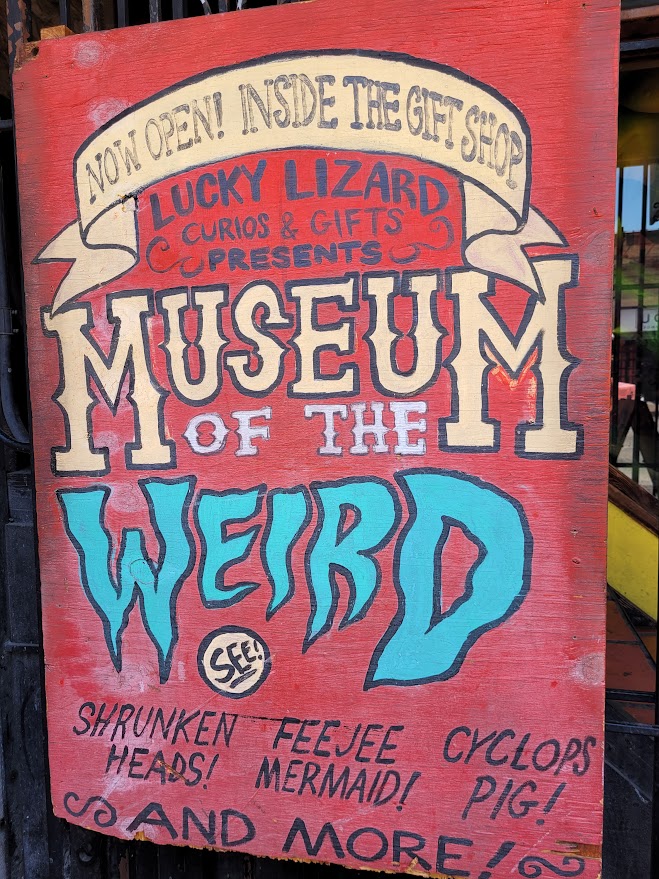 NOW OPEN! INSIDE THE GIFT SHOP
LUCKY LIZARD
CURIOS & GIFTS
PRESENTS
MUSEUM
OF THE
WEIRD
SEE!
SHRUNKEN HEADS!
FEEJEE MERMAID!
CYCLOPS PIG!
AND MORE!